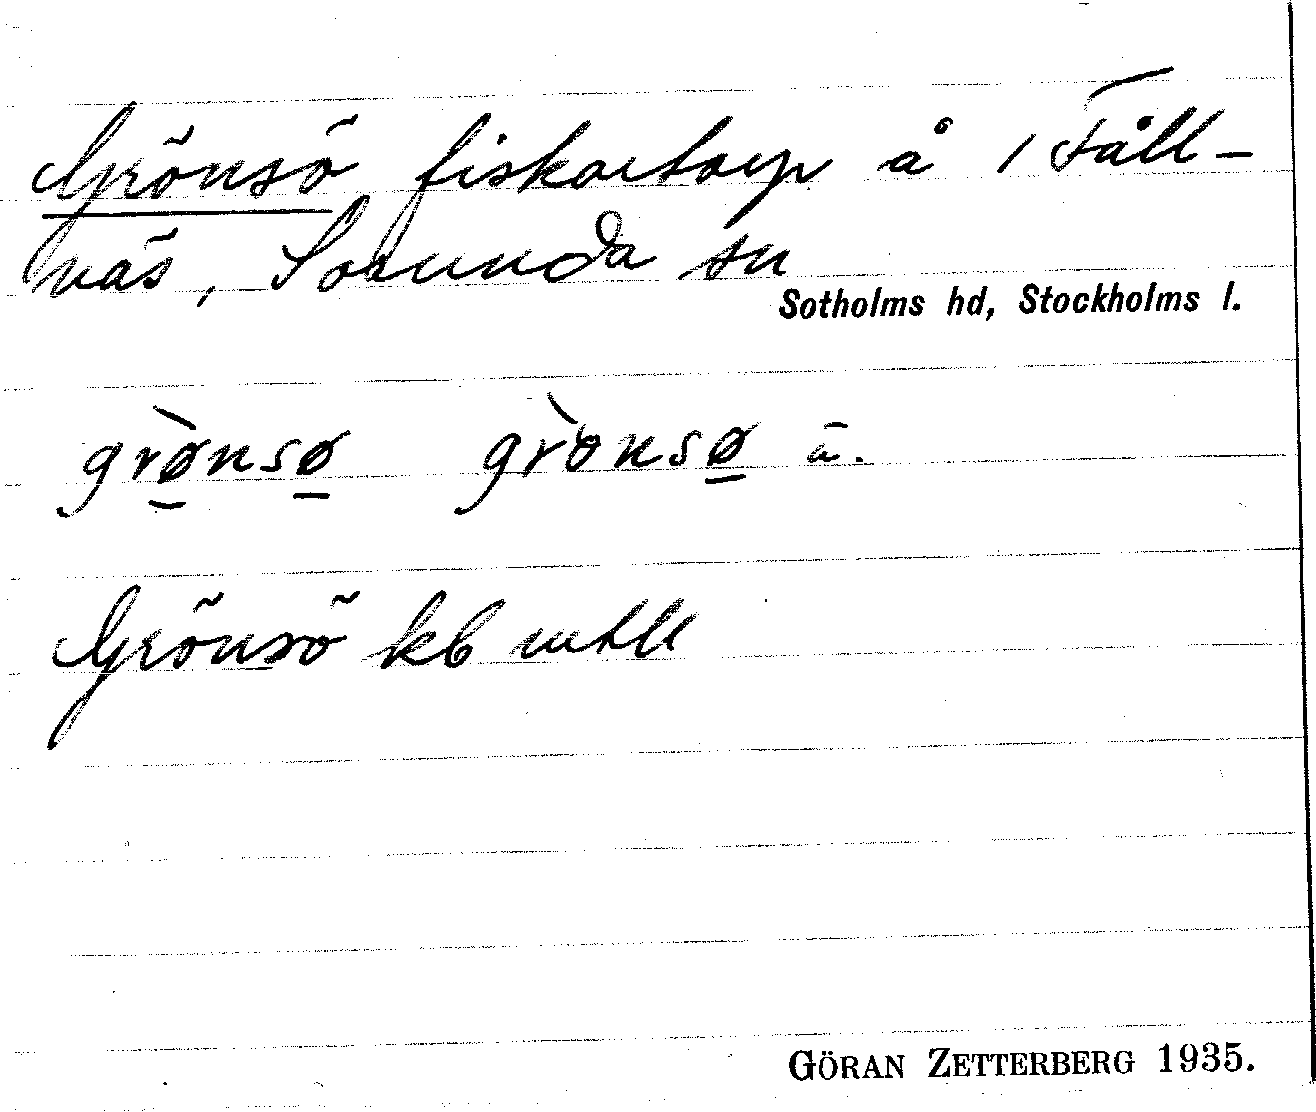 Grönsö fiskartorp å 1 Fåll-
näs, Sorunda sn
Sotholms hd, Stockholms l.
grø̱̀nsø̱ grònsø̱ ä.
Grönsö kb mtll
GÖRAN ZETTERBERG 1935.